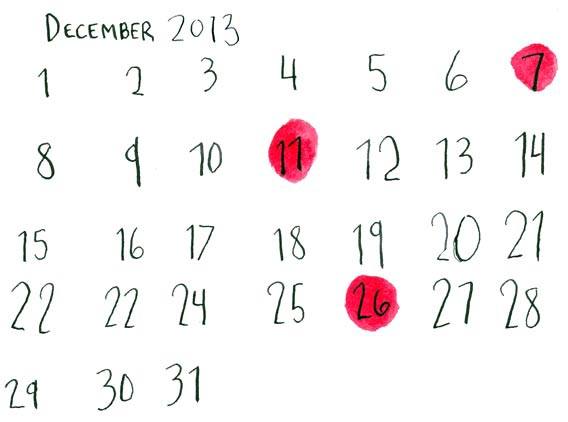 DECEMBER 2013
1 2 3 4 5 6 7
8 9 10 11 12 13 14
15 16 17 18 19 20 21
22 22 24 25 26 27 28
29 30 31